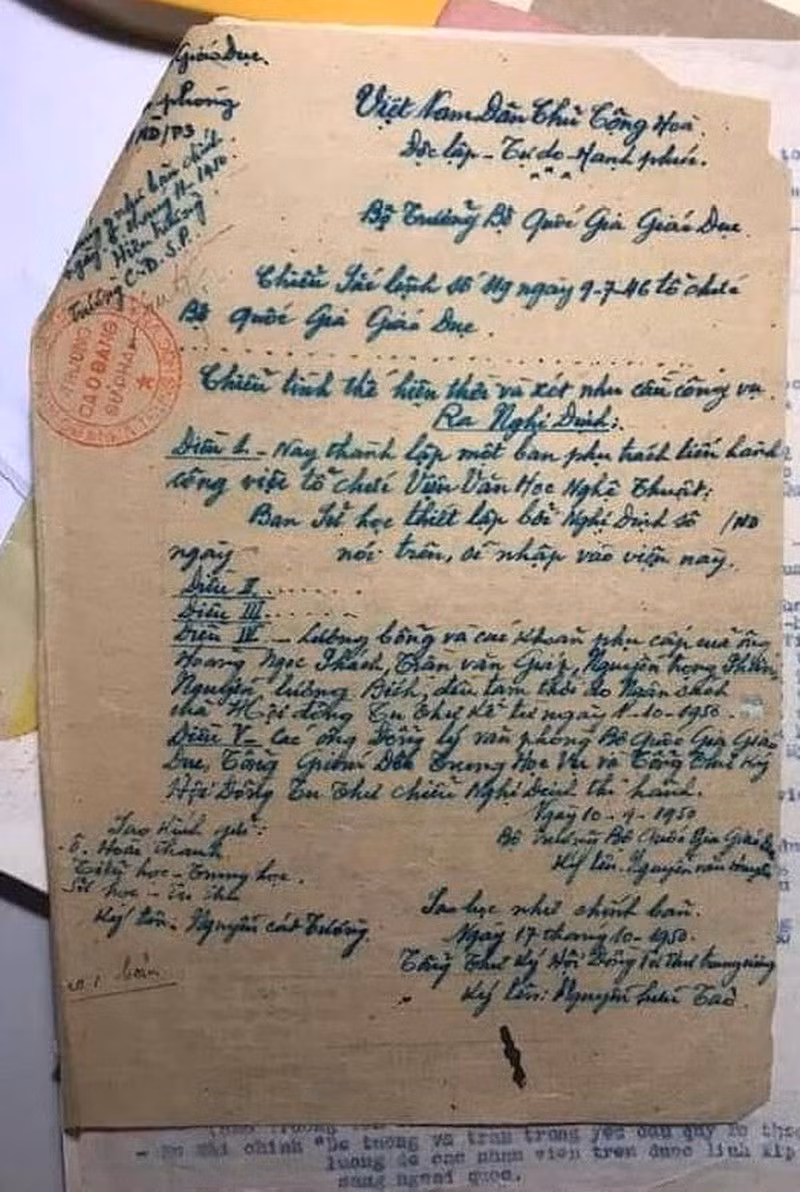 Giáo Dục.
phòng
/NĐ/P3
Việt Nam Dân Chủ Cộng Hoà.
Độc lập - Tự do - Hạnh phúc.
như bản chính
tháng 11-1950
Hiệu trưởng
Trường C.Đ.S.P.
TRƯỜNG
CAO ĐẲNG
SƯ PHẠM
Bộ Trưởng Bộ Quốc Gia Giáo Dục
Chiểu Sắc lệnh số 119 ngày 9-7-46 tổ chức
Bộ Quốc Gia Giáo Dục.
Chiểu tình thế hiện thời và xét nhu cầu công vụ.
Ra Nghị Định:
Điều I. - Nay thành lập một ban phụ trách tiến hành
công việc tổ chức Viện Văn Học Nghệ Thuật:
Ban Sử học thiết lập bởi Nghị Định số /NĐ
ngày nói trên, sẽ nhập vào viện này.
Điều II......
Điều III......
Điều IV - Lương bổng và các khoản phụ cấp của ông
Hoàng Ngọc Phách, Trần văn Giáp, Nguyễn trọng
Nguyễn lương Bích, đều tạm thời do Ngân sách
Hội đồng Tu Thư kể từ ngày 1-10-1950.
Điều V - Các ông Đổng lý văn phòng Bộ Quốc Gia Giáo
Dục, Tổng Giám Đốc Trung Học Vụ và Tổng Thư Ký
Hội Đồng Tu Thư chiểu Nghị Định thi hành.
Ngày 10-9-1950
Bộ Trưởng Bộ Quốc Gia Giáo Dục
Ký tên: Nguyễn văn Huyên
Sao kính gửi:
- Ô. Hoài Thanh
học - Trung học.
Sử học - Tu thư
Ký tên - Nguyễn cát Tường.
Sao lục như chính bản.
Ngày 17 tháng 10-1950.
Tổng Thư Ký Hội Đồng Tu Thư trung ương
Ký tên: Nguyễn hữu Tảo
bản
lương do các nhân viên trên được lĩnh
sang ngoại quốc.